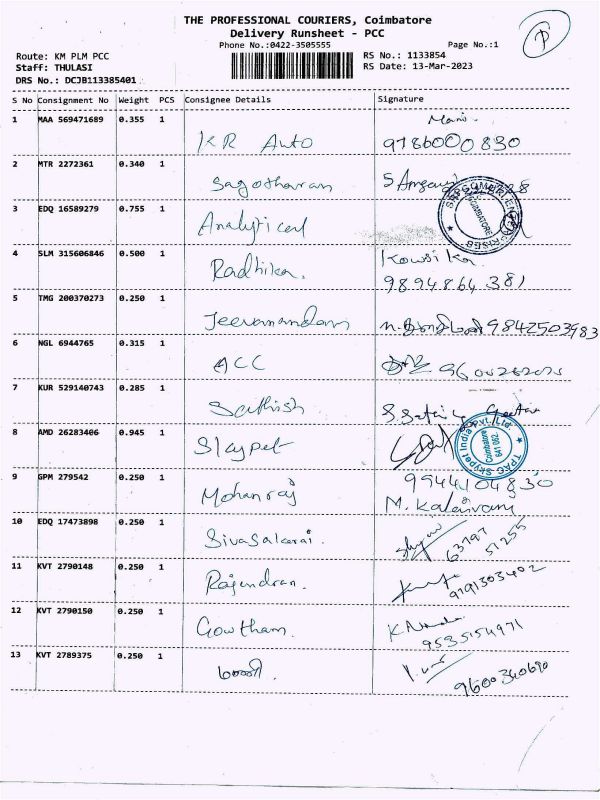 THE PROFESSIONAL COURIERS, Coimbatore
Delivery Runsheet - PCC
Phone No.:0422-3505555
Page No.:1
Route: KM PLM PCC
Staff: THULASI
DRS No.: DCJB113385401
RS No.: 1133854
RS Date: 13-Mar-2023
S No Consignment No Weight PCS Consignee Details Signature
1 MAA 569471689 0.355 1 KR Auto Mani
9786000830
2 MTR 2272361 0.340 1
3 EDQ 16589279 0.755 1 Analytical
4 SLM 315606846 0.500 1 Radhika. Kowsika
9894864381
5 TMG 200370273 0.250 1 Jeevanandam 9842503983
6 NGL 6944765 0.315 1 ACC
7 KUR 529140743 0.285 1 Sathish
8 AMD 26283406 0.945 1 Skypet
TPAC Skypet India Pvt. Ltd
Coimbatore
641 062.
9 GPM 279542 0.250 1 Mohanraj 9944104830
M. Kalaivani
10 EDQ 17473898 0.250 1 63797
51255
11 KVT 2790148 0.250 1 Rajendran. 9791303402
12 KVT 2790150 0.250 1 Gowtham. 9535154971
13 KVT 2789375 0.250 1 மணி. 9600340690